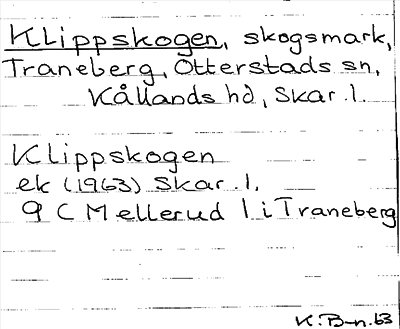 Klippskogen, skogsmark,
Traneberg, Otterstads sn,
Kållands hd, Skar. l.
Klippskogen
ek (1963) Skar. l.
9 C Mellerud l i Traneberg
K. B-n. 63